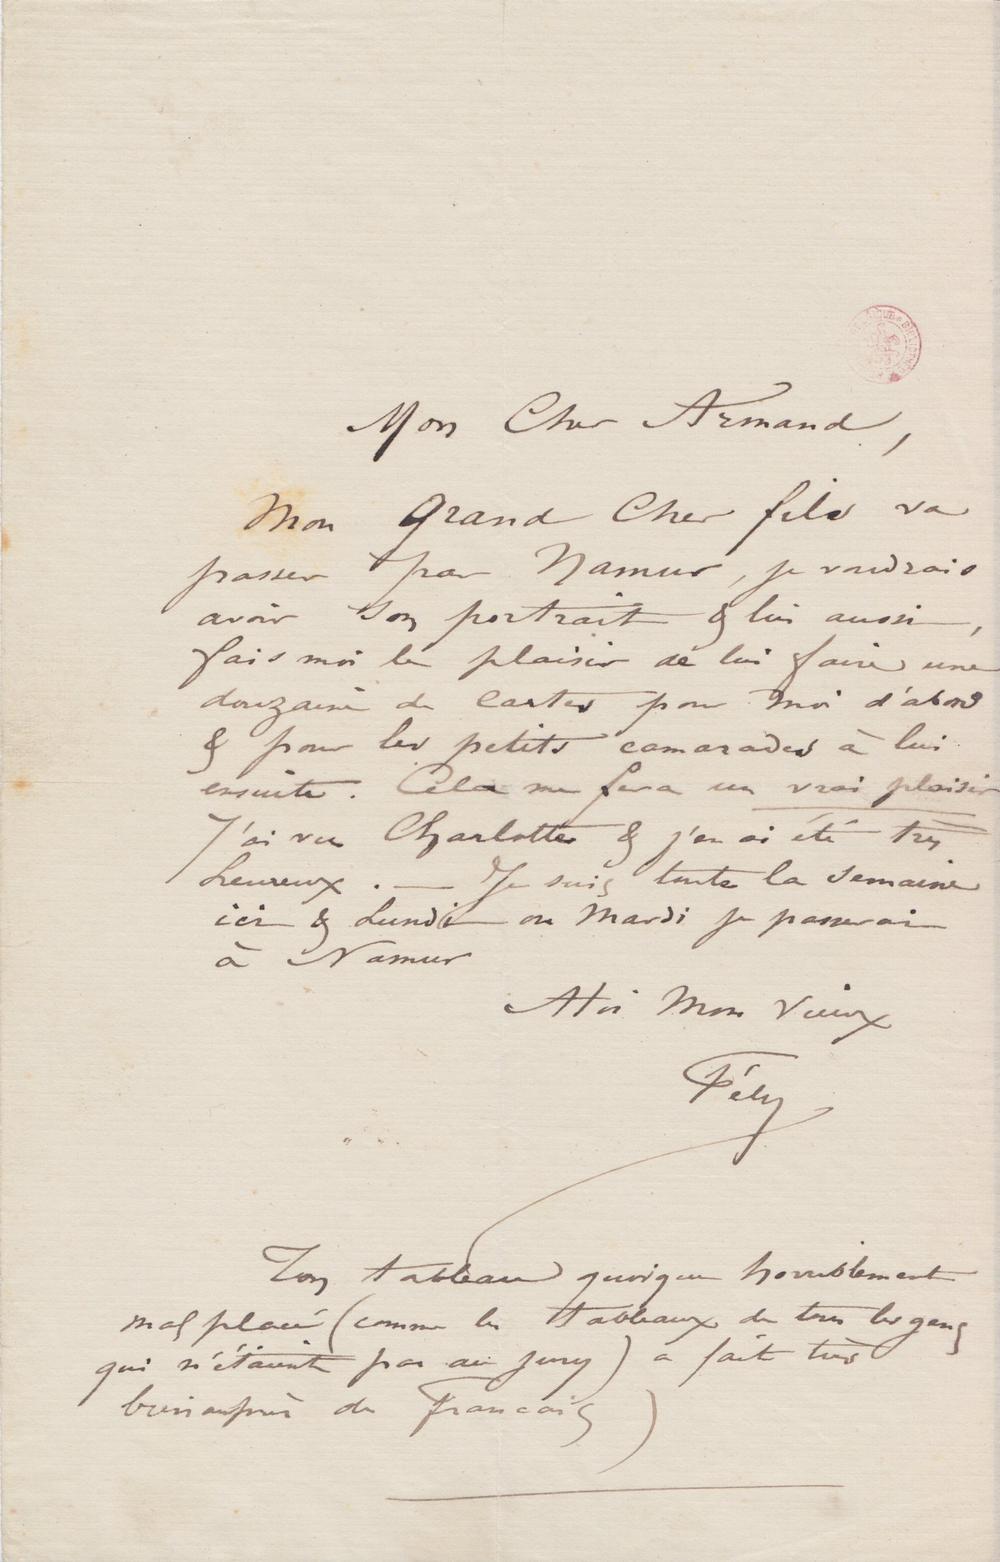 Mon Cher Armand,
Mon grand Cher fils va
passer par Namur, je voudrais
avoir son portrait & lui aussi,
fais moi le plaisir de lui faire une
douzaine de cartes pour moi d'abord
& pour les petits camarades à lui
ensuite. Cela me fera un vrai plaisir
J'ai vu Charlotte & j'en ai été très
heureux. — Je suis toute la semaine
ici & Lundi ou Mardi je passerai
à Namur
A toi Mon Vieux
Fély
Ton tableau quoique horriblement
mal placé (comme les tableaux de tous les gens
qui n'étaient pas au jury) a fait très
bien auprès des Francais)